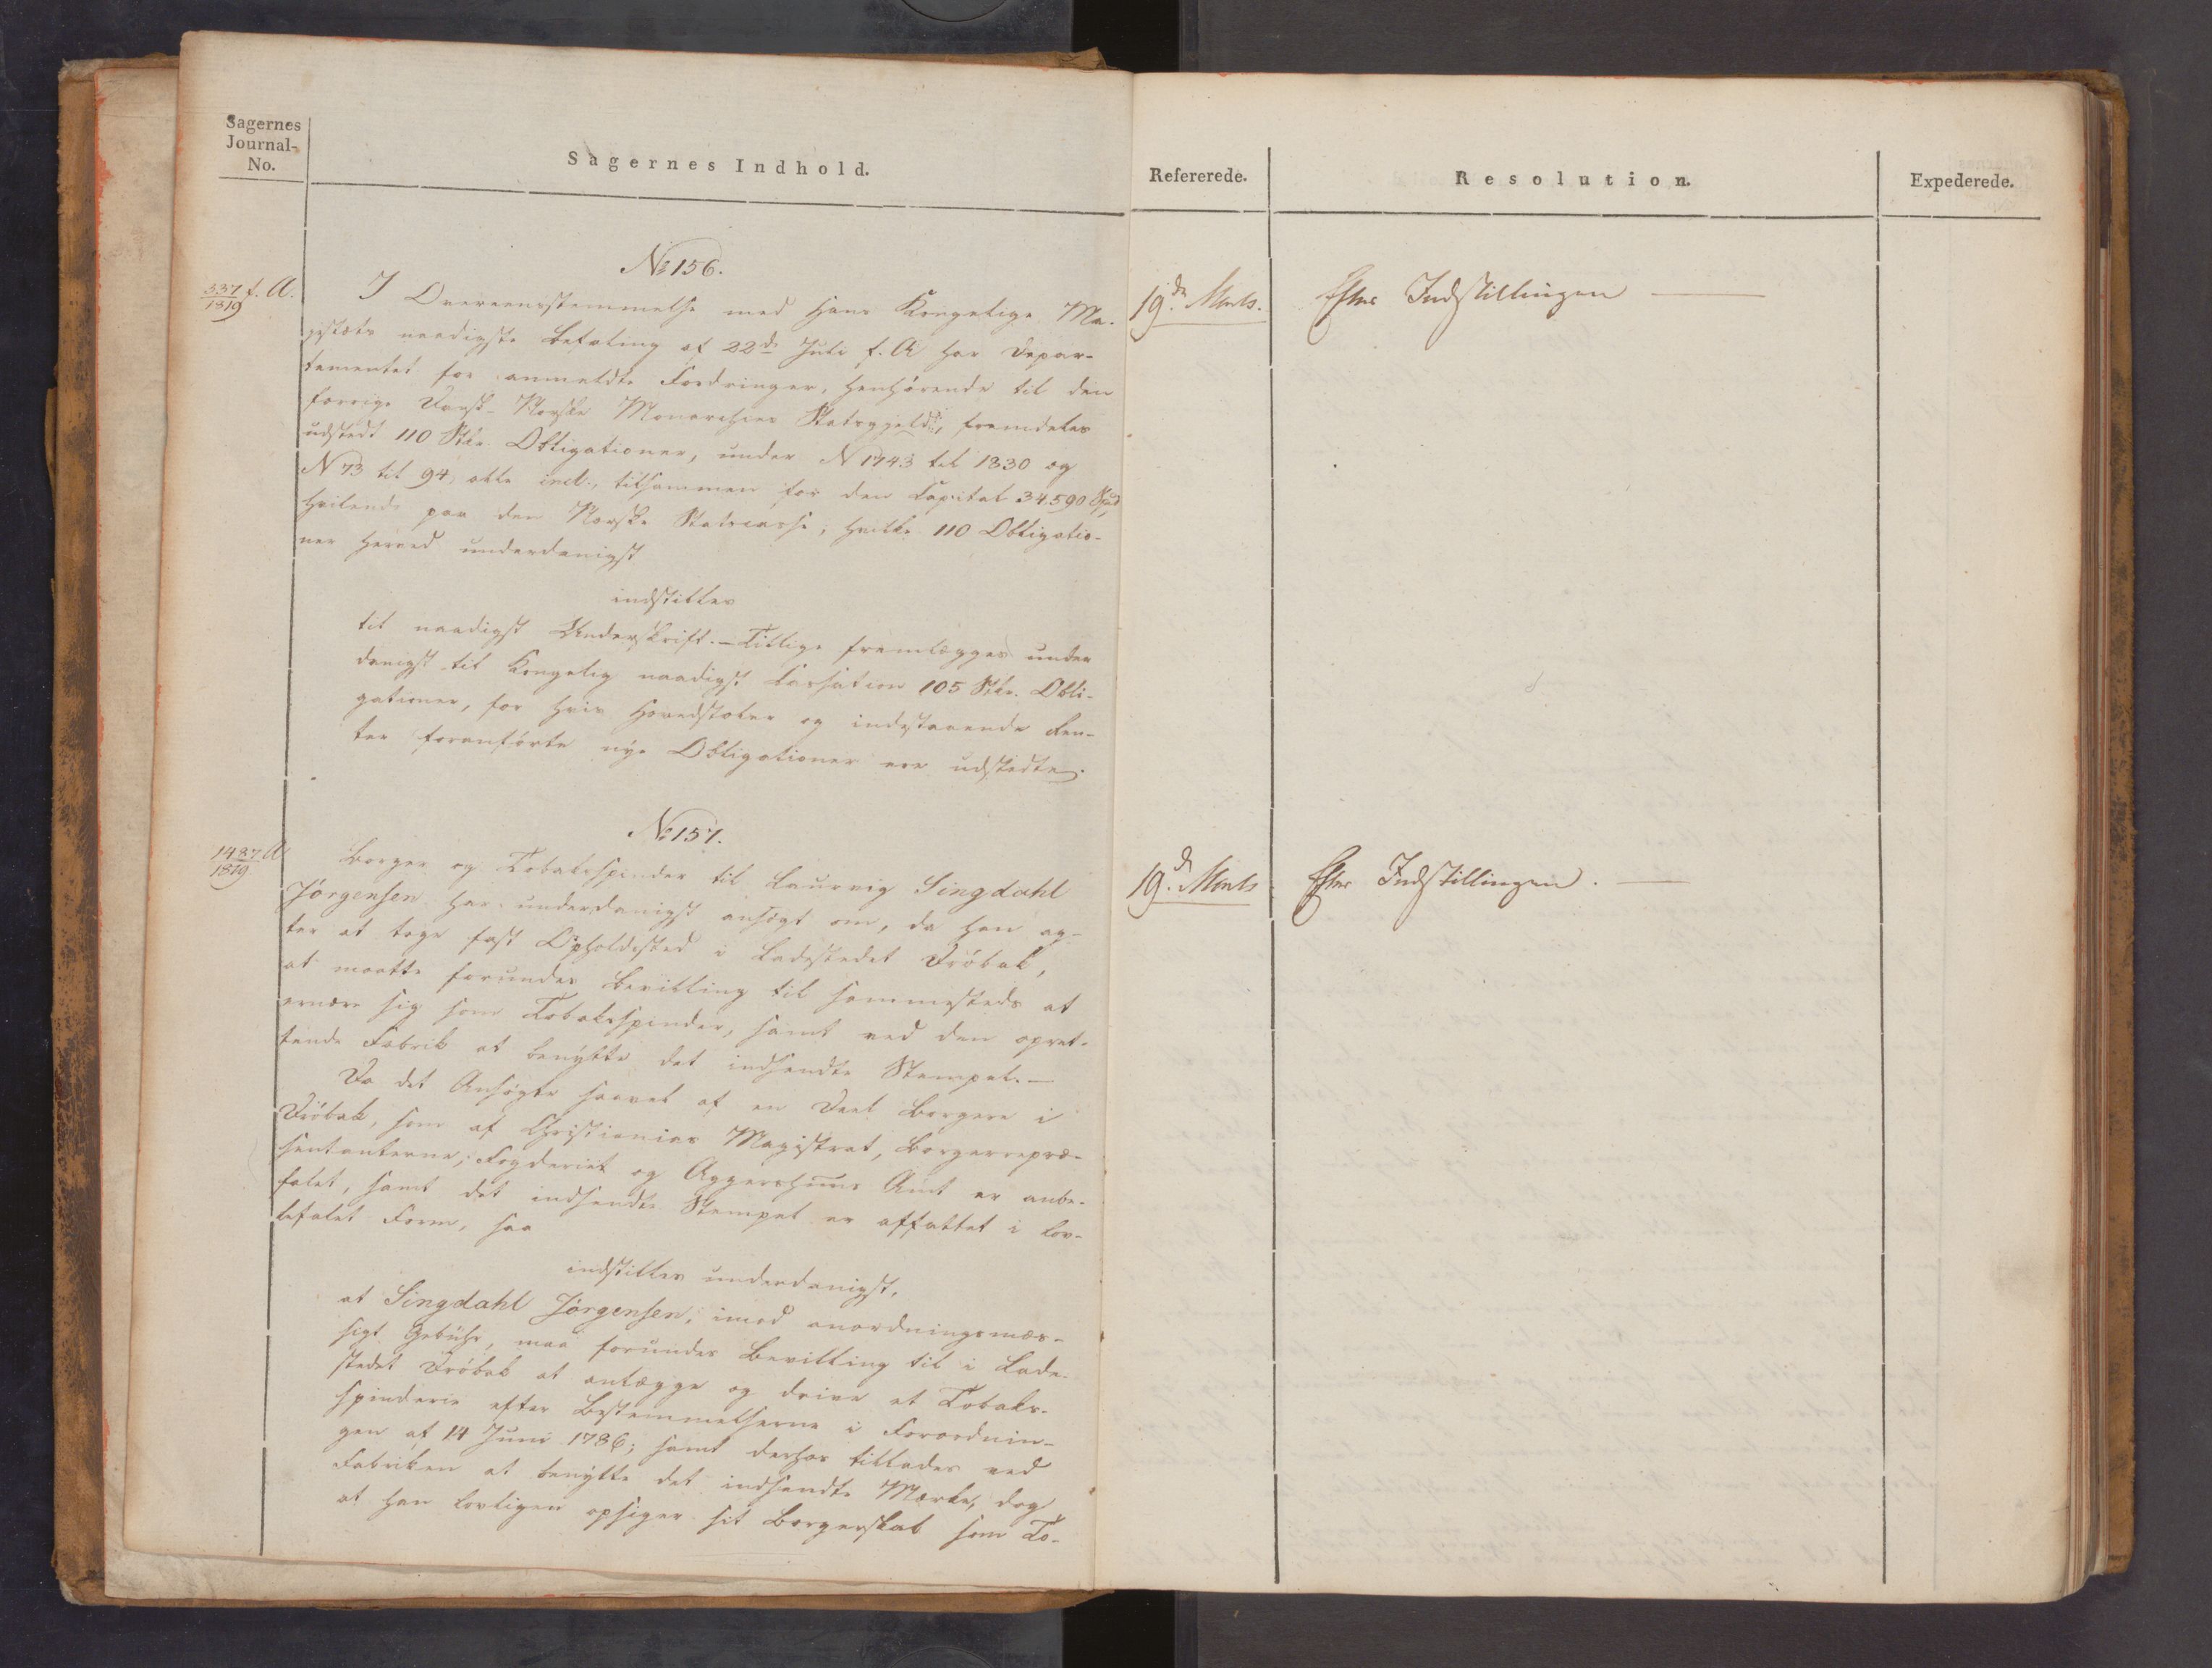 Sagernes
Journal-
No.
Sagernes Indhold.
No 156.
337/1819 f. A.
I Overeensstemmelse med Hans Kongelige Ma-
jestæts naadigste Befaling af 22de Juli f. A. har Depar-
tementet for anmeldte Fordringer, henhörende til den
forrige Dansk-Norske Monarchies Statsgjeld, fremdeles
udstedt 110 Stkr. Obligationer, under N 1743 til 1830 og
N 73 til 94, alle incl., tilsammen for den Capital 34,590 Spd
hvilende paa den Norske Statscasse; hvilke 110 Obligatio-
ner herved underdanigst
indstilles
til naadigst Underskrift. — Tillige fremlægges under
danigst til Kongelig naadigst Cassation 105 Stkr. Obli-
gationer, for hvis Hovedstoler og indestaaende Ren-
ter foranförte nye Obligationer ere udstedte.
No 157.
1487/1819 A
Borger og Tobaksspinder til Laurvig Singdahl
Jörgensen har underdanigst ansögt om, da han ag-
ter at tage fast Opholdssted i Ladestedet Dröbak,
at maatte forundes Bevilling til sammesteds at
ernære sig som Tobaksspinder, samt ved den opret-
tende Fabrik at benytte det indsendte Stempel. —
Da det Ansögte saavel af en Deel Borgere i
Dröbak, som af Christianias Magistrat, Borgerrepræ-
sentanterne, Fogderiet og Aggershuus Amt er anbe-
falet, samt det indsendte Stempel er affattet i lov-
befalet Form, saa
indstilles underdanigst,
at Singdahl Jörgensen, imod anordningsmæs-
sigt Gebühr, maa forundes Bevilling til i Lade-
stedet Dröbak at anlægge og drive et Tobaks-
spinderie efter Bestemmelserne i Forordnin-
gen af 14 Juni 1786; samt derhos tillades ved
Fabriken at benytte det indsendte Mærke, dog
at han lovligen opsiger sit Borgerskab som To-
Refererede.
Resolution.
Expederede.
19de Marts.
Efter Indstillingen —
19de Marts
Efter Indstillingen. —